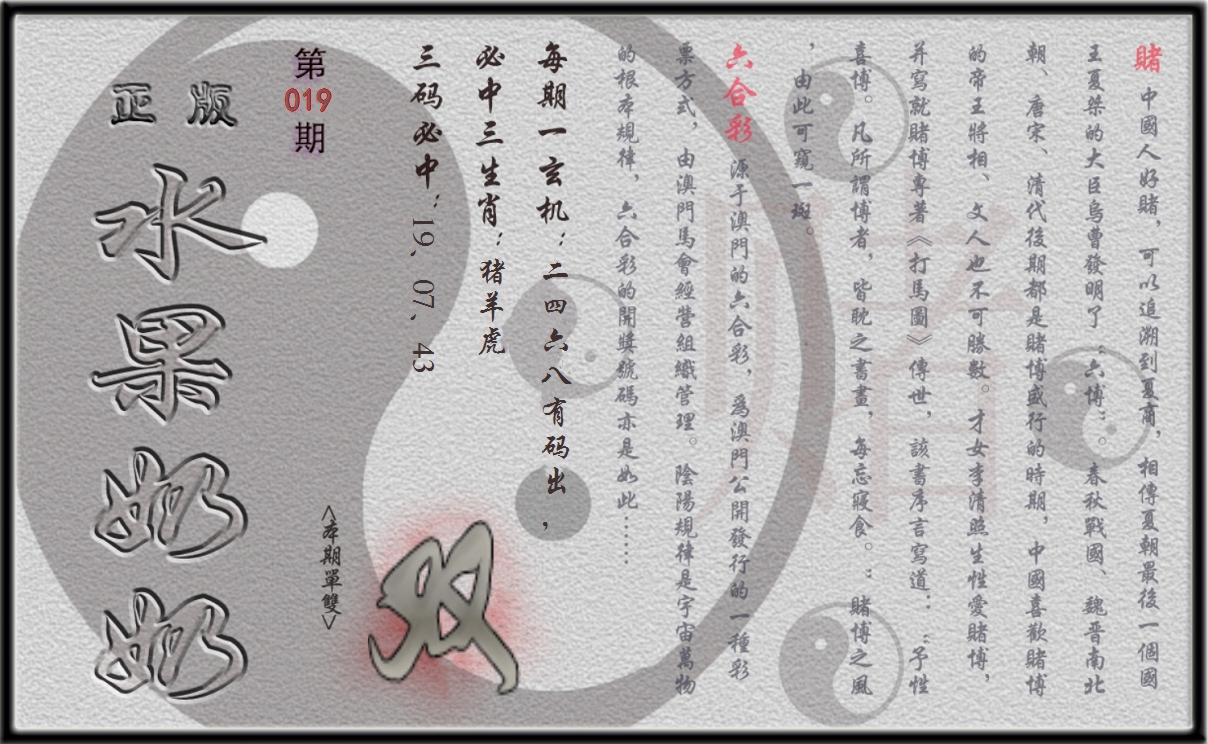 賭 中國人好賭，可以追溯到夏商，相傳夏朝最後一個國
王夏桀的大臣烏曹發明了“六博”。春秋戰國、魏晉南北
朝、唐宋、清代後期都是賭博盛行的時期，中國喜歡賭博
的帝王將相、文人也不可勝數。才女李清照生性愛賭博，
并寫就賭博專著《打馬圖》傳世，該書序言寫道：“予性
喜博。凡所謂博者，皆眈之書畫，每忘寢食。：賭博之風
，由此可窺一斑。
六合彩 源于澳門的六合彩，爲澳門公開發行的一種彩
票方式，由澳門馬會經營組織管理。陰陽規律是宇宙萬物
的根本規律，六合彩的開獎號碼亦是如此……
每期一玄机：二四六八有码出，
必中三生肖：猪羊虎
三码必中：19、07、43
<本期單雙>
双
第
019
期
正版
水果奶奶
赌